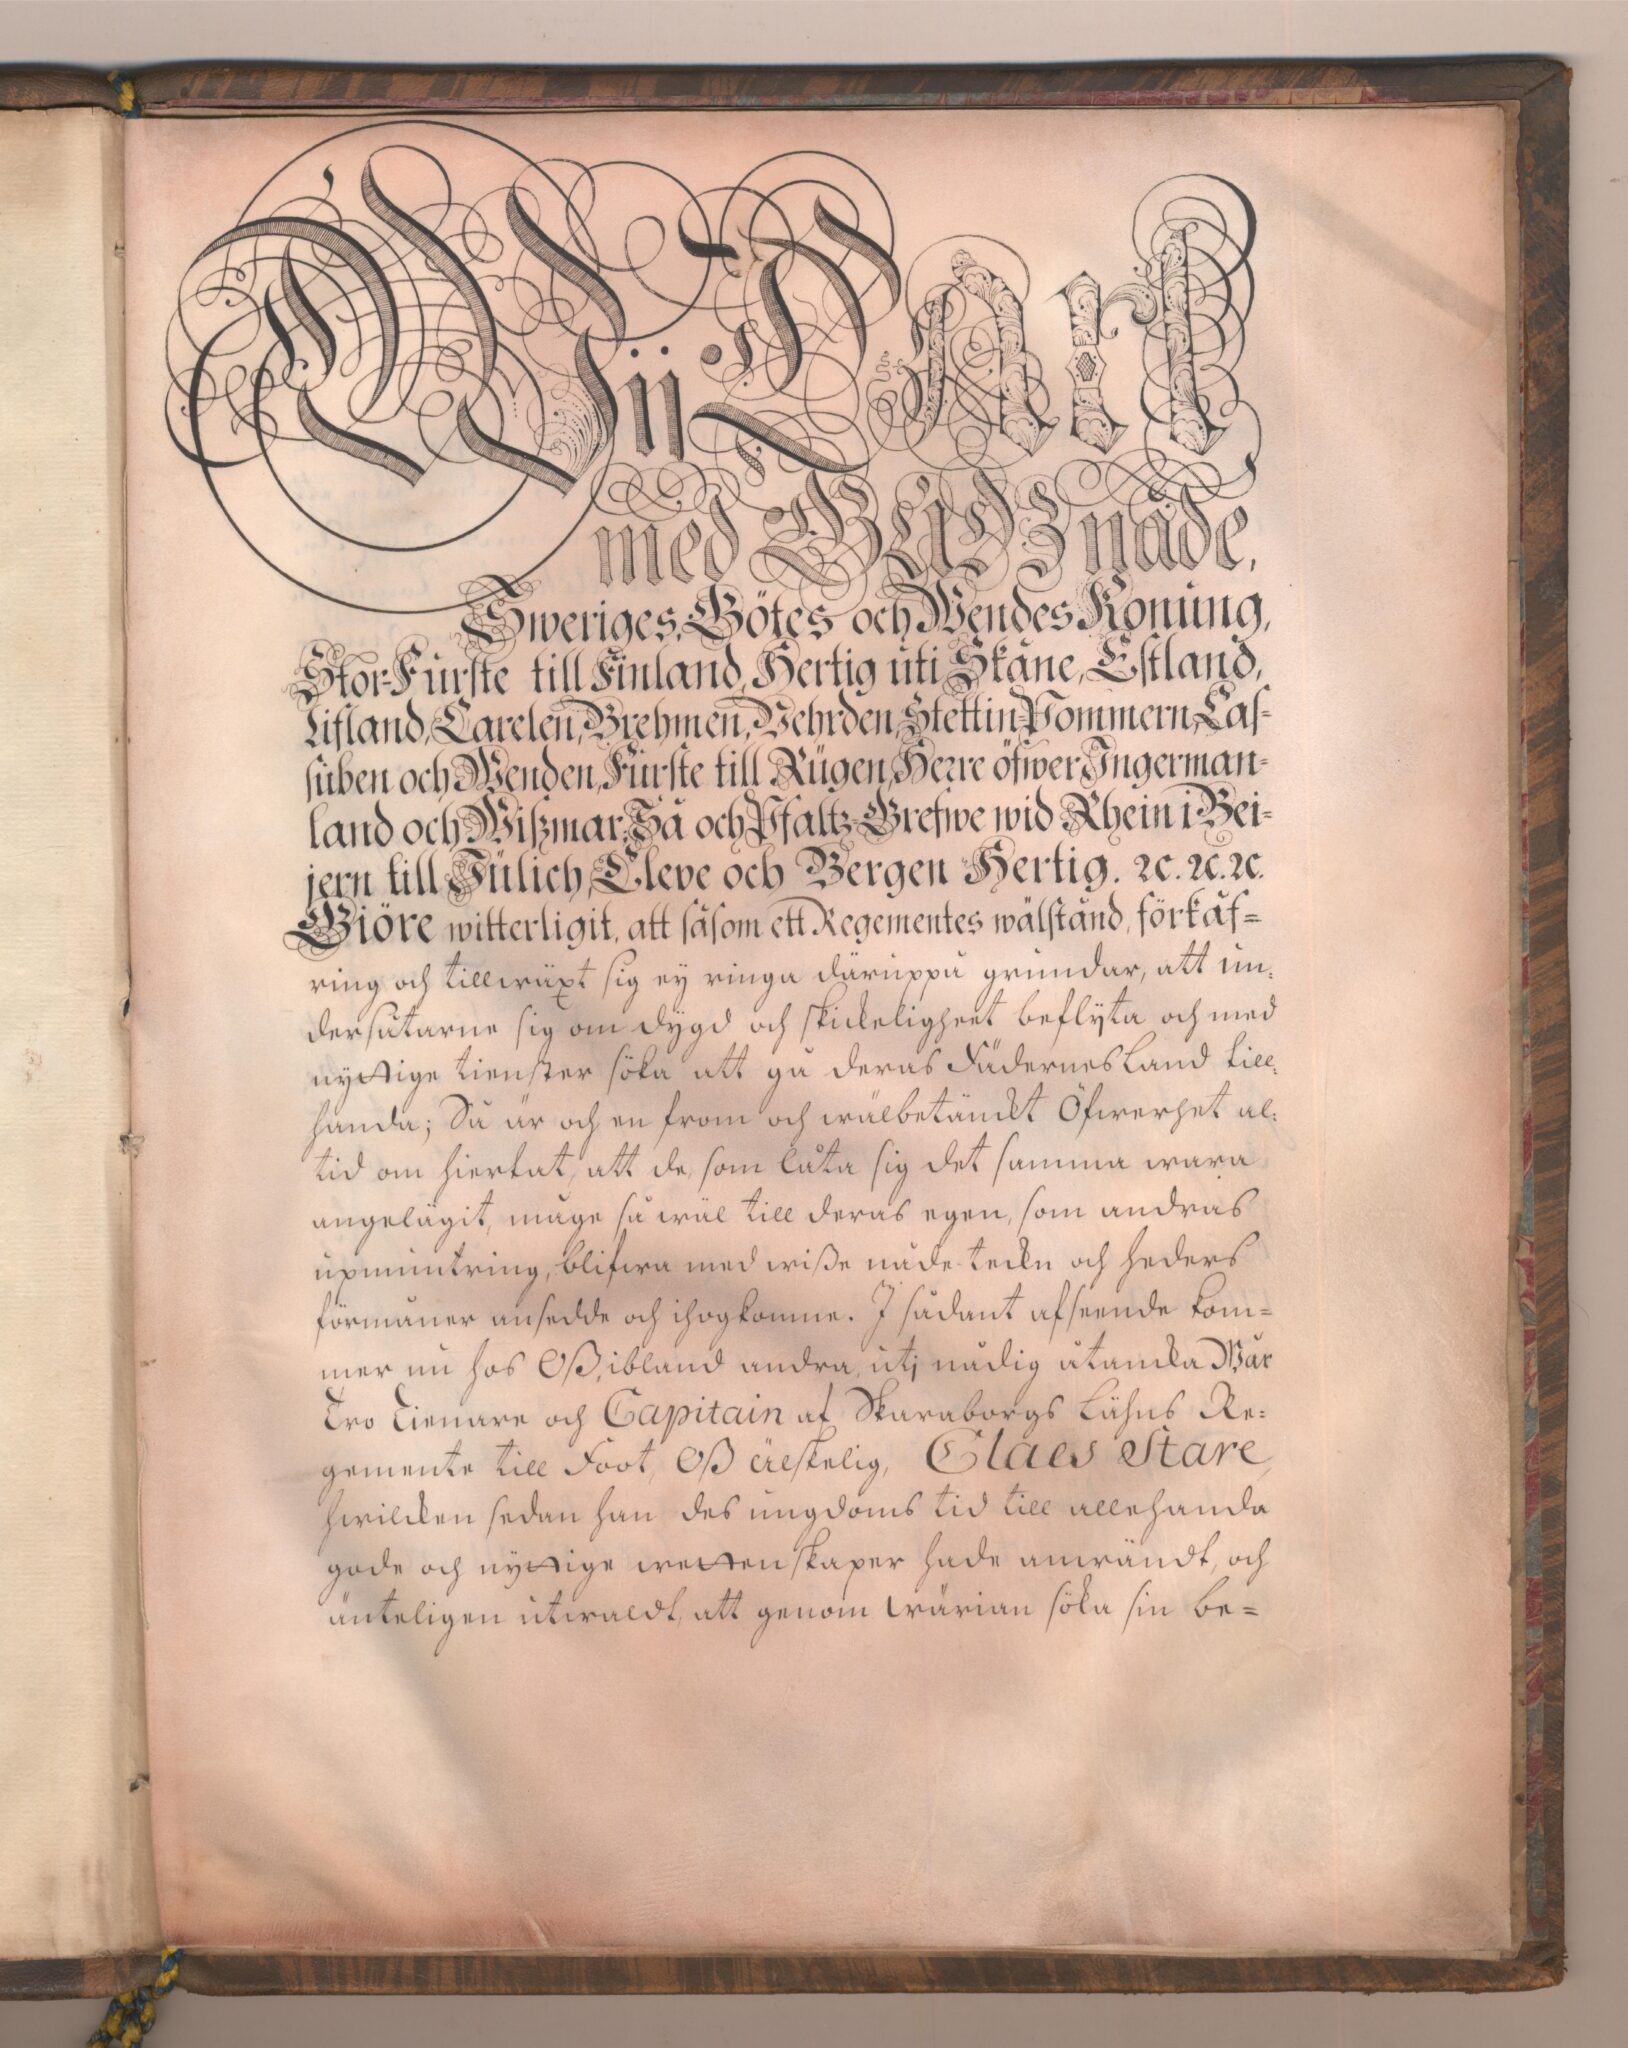 Wii Carl
med Gudz nåde,
Sweriges, Götes och Wendes Konung,
Stor-Furste till Finland, Hertig uti Skåne, Estland,
Lifland, Carelen, Brehmen, Vehrden, Stettin-Pommern, Cas-
suben och Wenden, Furste till Rügen, Herre öfwer Ingerman-
land och Wißmar, Så och Pfaltz-Grefwe wid Rhein i Bei-
jern till Jülich, Cleve och Bergen Hertig. ꝛc. ꝛc. ꝛc.
Giöre witterligit, att såsom ett Regementes wälstånd, förkåf-
ring och tillwäxt sig ey ringa däruppå grundar, att un-
dersåtarne sig om dygd och skickeligheet beflyta och med
nyttige tienster söka att gå deras Fädernesland till-
handa; Så är och en from och wälbetänckt Öfwerhet al-
tid om hiertat, att de, som låta sig det samma wara
angelägit, måge så wäl till deras egen, som andras
upmuntring, blifwa med wiße nåde-teckn och heders
förmåner ansedde och ihogkomne. I sådant afseende kom-
mer nu hos Oß, ibland andra, utj nådig åtancka Wår
Tro Tienare och Capitain af Skaraborgs Lähns Re-
gemente till Foot, Oß älskelig, Claes Stare,
hwilcken sedan han des ungdoms tid till allehanda
gode och nyttige wettenskaper hade anwändt, och
änteligen utwaldt, att genom wärian söka sin be-